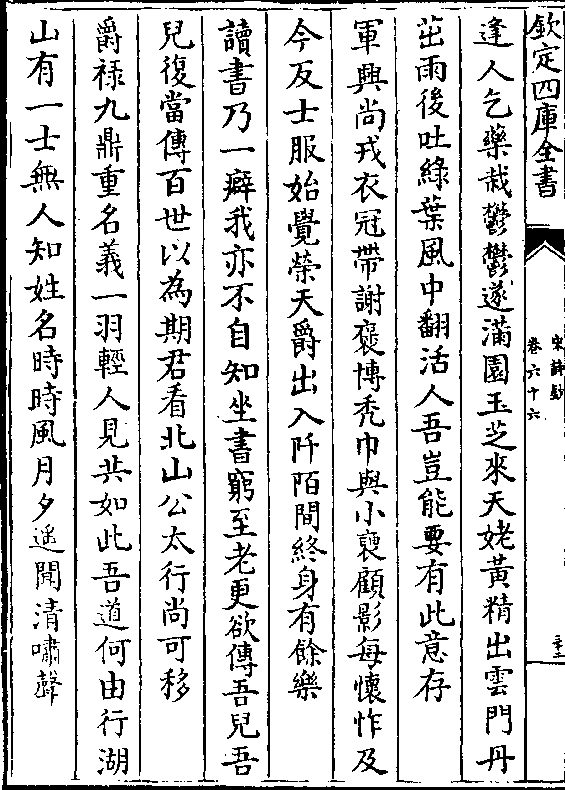 欽定四庫全書
宋詩鈔
卷六十六
逢人乞藥栽鬱鬱遂滿園玉芝來天姥黃精出雲門丹
茁雨後吐綠葉風中翻活人吾豈能要有此意存
軍興尚戎衣冠帶謝褒博禿巾與小褏顧影每懷怍及
今反士服始覺榮天爵出入阡陌間終身有餘樂
讀書乃一癖我亦不自知坐書窮至老更欲傳吾兒吾
兒復當傳百世以為期君看北山公太行尚可移
爵祿九鼎重名義一羽輕人見共如此吾道何由行湖
山有一士無人知姓名時時風月夕遥聞清嘯聲